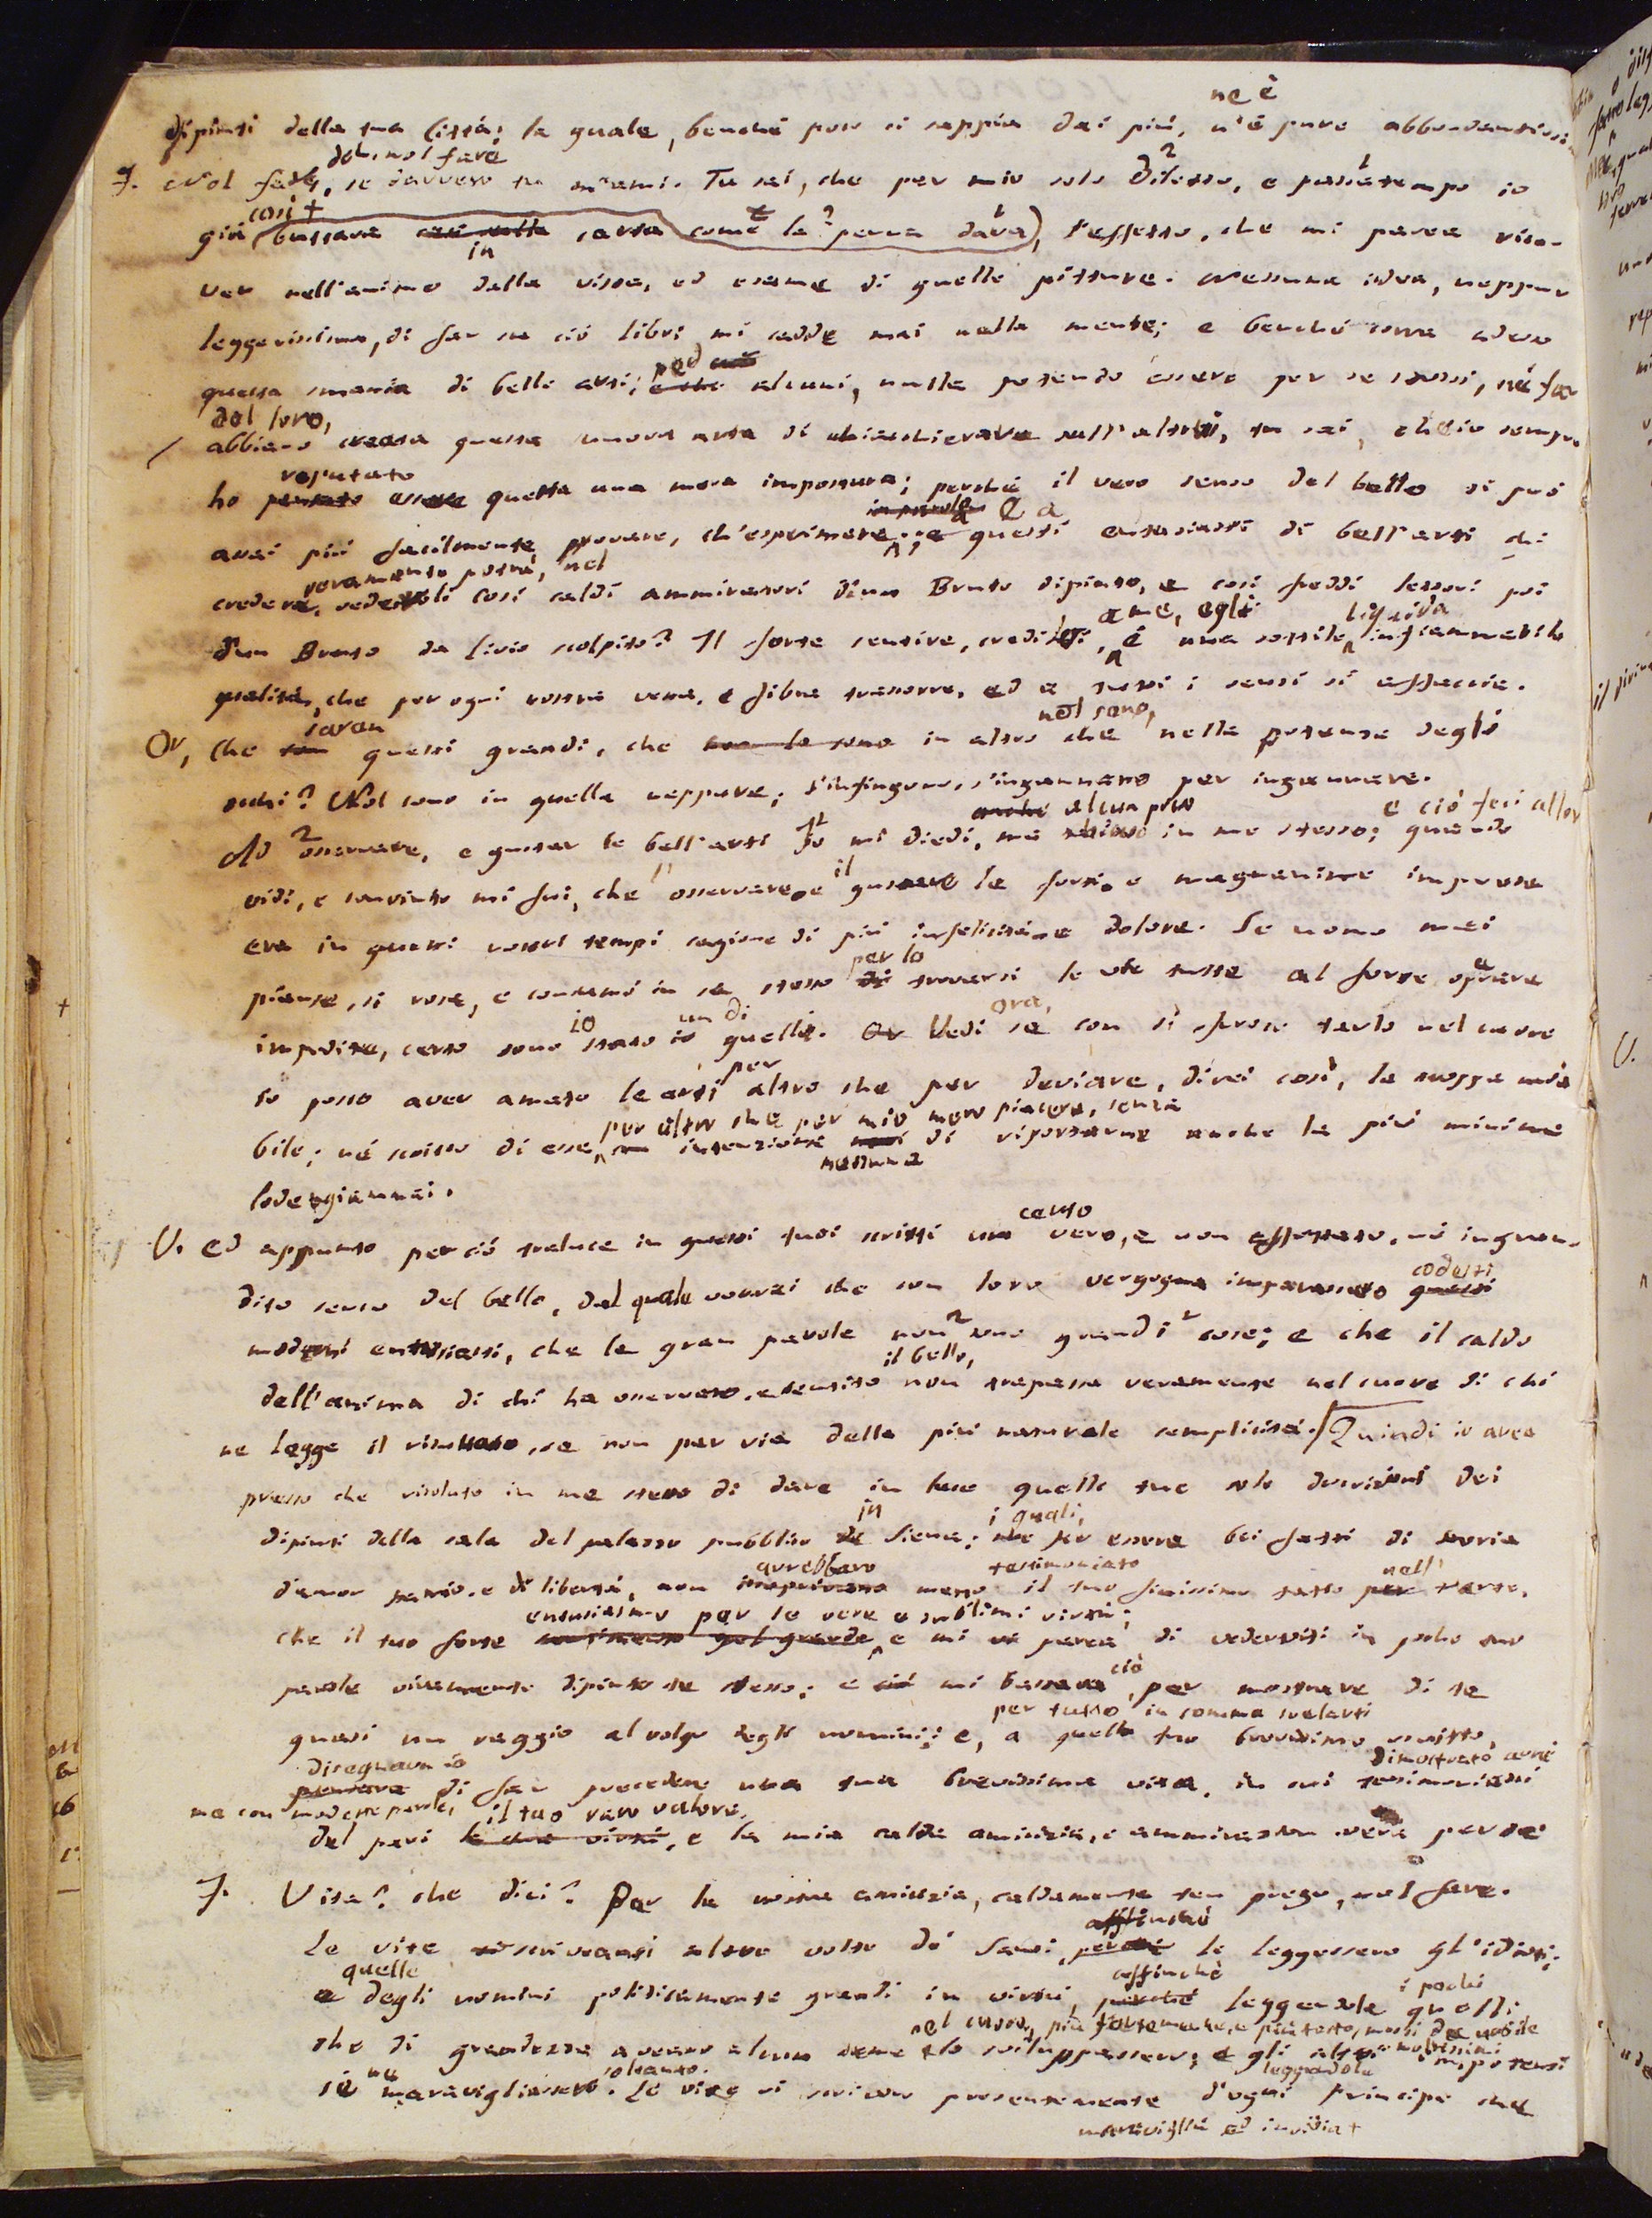 ne è
dipinti della tua Città; la quale, benché poco si sappia dai più, n'è pure abbondantissi-
deh, nol fare
F. Nol fare, se davvero tu m'ami. Tu sai, che per mio solo diletto, e passatempo io
così +
già buttava carta (come la penna dava), l'effetto, che mi parea rice-
in
ver nell'animo dalla vista, ed esame di quelle pitture. Nessuna idea, neppur
leggerissima, di far su ciò libri mi cadde mai nella mente; e benché corra adesso
ed
questa smania di belle arti; alcuni, nulla potendo essere per se stessi, né far
del loro,
abbiano creata questa nuova arte di chiacchierare sull'altrui, tu sai, ch'io sempre
reputato
ho pensato essere questa una mera impostura; perché il vero senso del bello si può
in parole E a
assai più facilmente provare, ch'esprimere; e questi entusiasti di bell'arti chi
veramente potrà, nel
credere, vedendoli così caldi ammiratori d'un Bruto dipinto, e così freddi lettori poi
a me, egli liquida
d'un Bruto da Livio scolpito? Il forte sentire, credilo, è una sottile infiammabile
qualità, che per ogni nostra vena, e fibra trascorre, ed a tutti i sensi si affaccia.
saran nol sono,
Or, che son questi grandi, che non lo sono in altro che nella potenza degli
occhi? Nol sono in quella neppure; s'infingono, s'ingannano per ingannare.
anche alcun poco e ciò feci allor
Ad osservare, e gustar le bell'arti Io mi diedi, ma in me stesso; quando
l' il
vidi, e convinto mi fui, che osservare, e gustare le forti, e magnanime imprese
era in questi nostri tempi cagione di più infelicità, e dolore. Se uomo mai
per lo
pianse, si rose, e consumò in se stesso di trovarsi le vie tutte al forte operare
io un di ora,
impedite, certo sono stato io quelli. Or Vedi se con sì feroce tarlo nel cuore
per
io posso aver amato le arti altro che per deviare, direi così, la rozza
per altro che per mio mero piacere, senza
bile; né scritto di esse, intenzione di riportarne anche la più minima
nessuna
lode giammai.
certo
V. Ed appunto perciò traluce in questi tuoi scritti un vero, e non affettato, né ingran-
codesti
dito senso del bello, dal quale vorrei che con loro vergogna imparassero questi
moderni entusiasti, che le gran parole non sono grandi cose; e che il caldo
il bello,
dell'anima di chi ha osservato, e sentito non trapassa veramente nel cuore di chi
ne legge il risultato, se non per via della più naturale semplicità. Quindi io avea
presso che risoluto in me stesso di dare in luce quelle tue sole descrizioni dei
in i quali,
dipinti della sala del palazzo pubblico di Siena; che per essere bei fatti di storia
avrebbero testimoniato nell'
d'amor patrio, e di libertà, non meno il tuo finissimo tatto per l'arte,
entusiasmo per le vere e sublimi virtù;
che il tuo forte sentimento pel grande, e mi parea di vedervisi in poche tue
ciò
parole vivamente dipinto te stesso: e ciò mi bastava, per mostrare di te
per tutto in somma svelarti
quasi un raggio al volgo degli uomini; e, a quello tuo brevissimo scritto,
disegnava io dimostrato avrei
pensava di far precedere una tua brevissima vita, in cui testimoniassi
ma con modeste parole, il tuo raro valore,
del pari le tue virtù, e la mia calda amicizia, e ammirazion vera per te.
F. Vita? che dici? Per la nostra amicizia, caldamente ten prego, nol fare.
affinché
Le vite scriveansi altre volte de' Santi, perché le leggessero gl'idioti;
quelle affinché i pochi
e degli uomini politicamente grandi in virtù, perché leggendole quelli
nel cuore, più fortemente, e più tosto, mossi da nobile
che di grandezza aveano alcun seme lo sviluppassero; e gli altri moltissimi impotenti
ne soltanto. leggendole
si maravigliassero. Le vite si scrivon presentemente d'ogni Principe che
maraviglia ed invidia +